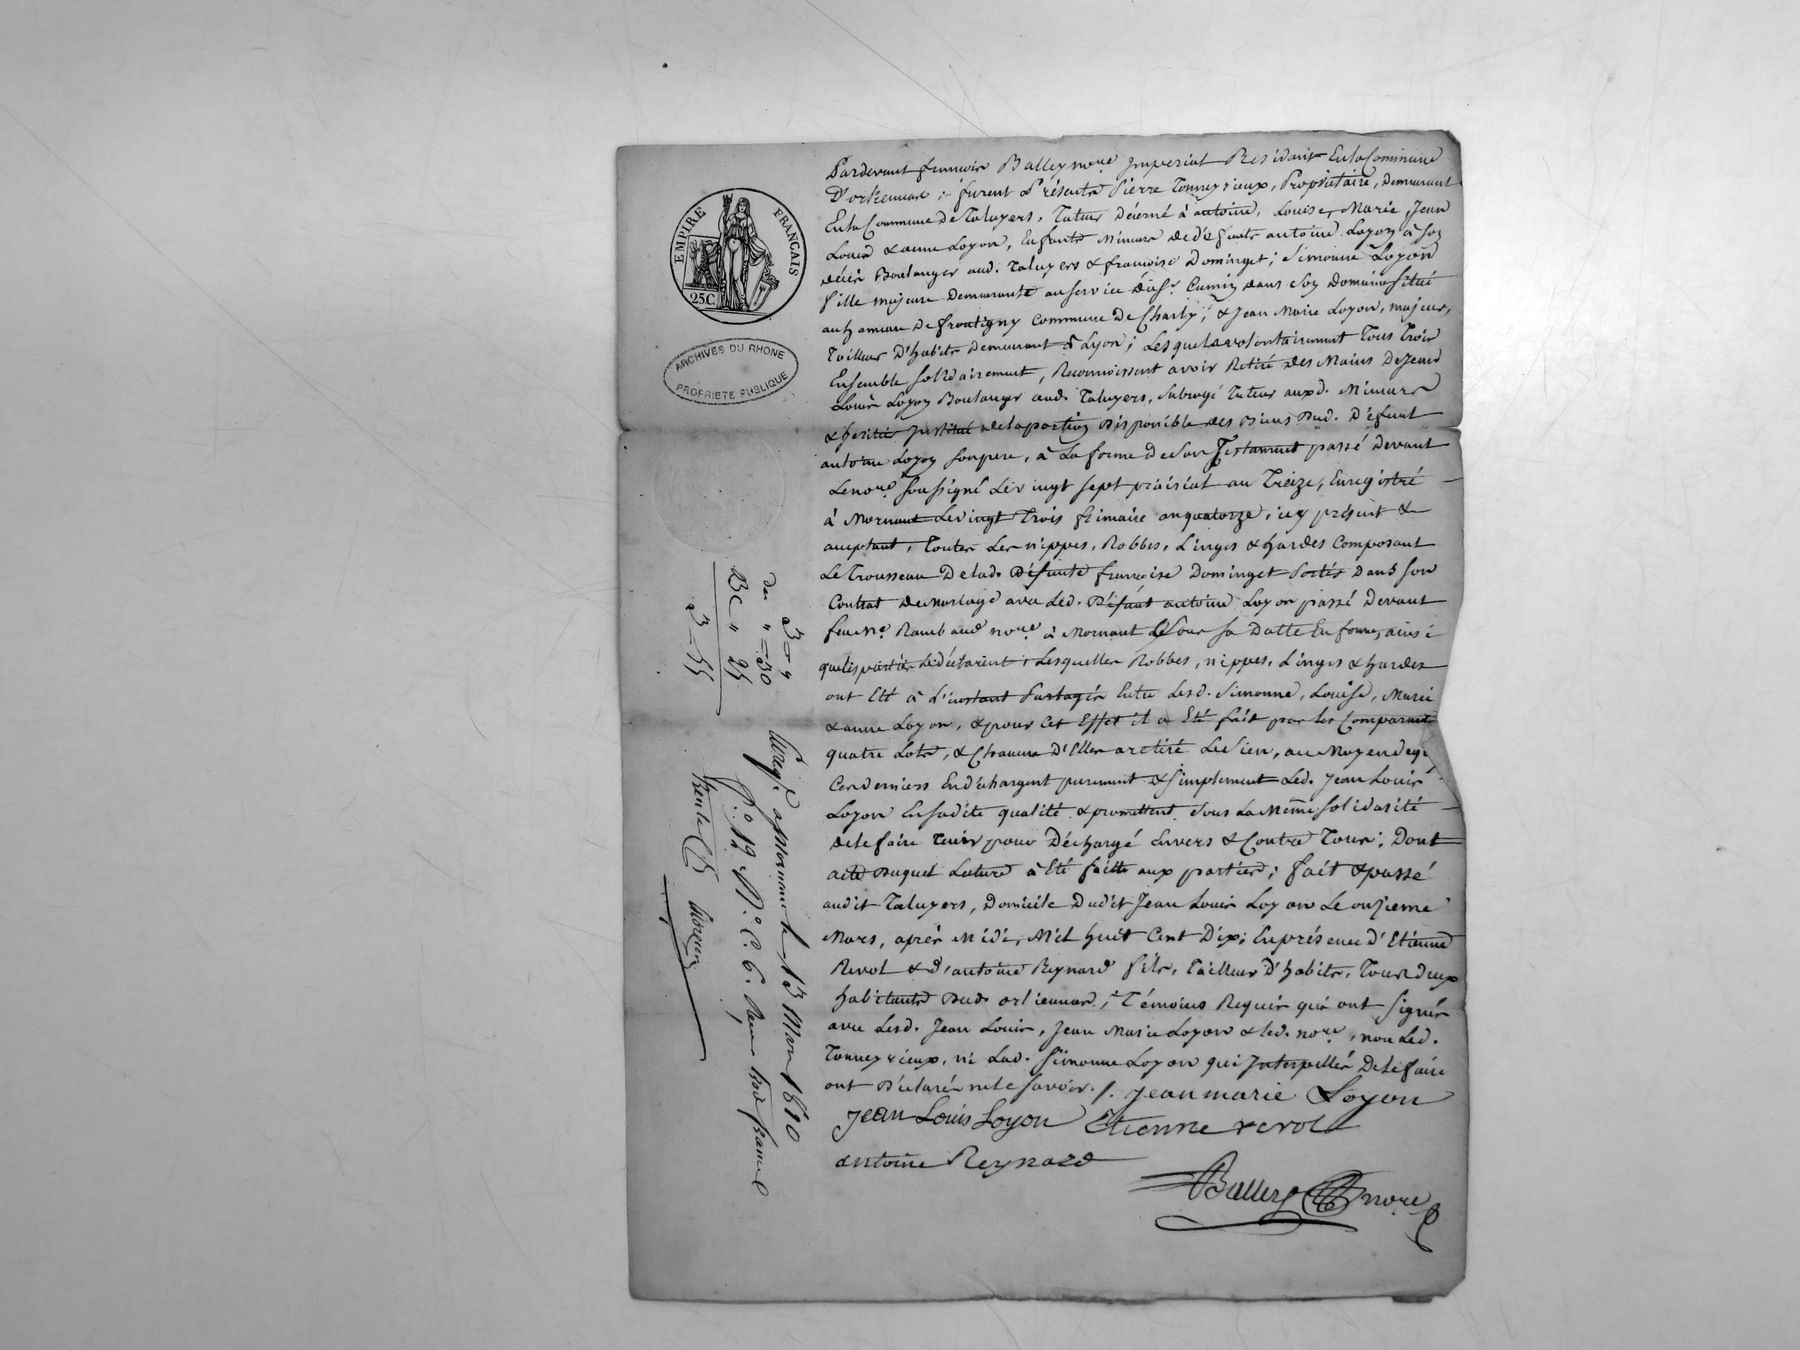 EMPIRE FRANÇAIS
25C
ARCHIVES DU RHONE
PROPRIÉTÉ PUBLIQUE
Pardevant francois Balley no.re Imperial Residant En la Commune
D'orlienas ; furent Présents Pierre Tonnerieux, Propriétaire, demeurant
En la Commune de Taluyers, Tuteur Décerné à antoine, Louise, Marie, Jean
Louis & anne Loyon, Enfants Mineurs de défunts antoine Loyon à son
décès Boulanger aud. Taluyers & francoise Dominget ; Simonne Loyon
fille majeure Demeurante au service du s.r Cumin dans son Domaine situé
au hameau De frontigny Commune De Charly ; & Jean Marie Loyon, majeur,
Tailleur D'habits demeurant à Lyon ; Lesquels volontairement Tous Trois
Ensemble solidairement, Reconnoissent avoir Retiré des Mains De Jean
Louis Loyon Boulanger aud. Taluyers, subrogé Tuteur auxd. Mineurs
& heritier Institué de la portion Disponible des Biens Dud. Défunt
antoine Loyon son pere, à La forme De son Testament passé Devant
Le no.re soussigné Le vingt sept prairial an Treize, Enregistré
à Mornant Le vingt Trois frimaire an quatorze, icy présent &
acceptant, Toutes Les nippes, Robbes, Linges & hardes Composant
Le Trousseau De lad. Défunte francoise Dominget Portés Dans son
Contrat de mariage avec Led. Défunt antoine Loyon passé Devant
feu M.e Rambaud no.re à Mornant sous sa Datte En forme, ainsi
que les parties Le déclarent ; Lesquelles Robbes, nippes, Linges & hardes
ont Eté à L'instant Partagés Entre Lesd. Simonne, Louise, Marie
& anne Loyon, & pour Cet Effet il a Eté fait par les Comparants
quatre Lots, & Chacune D'Elles a retiré Le sien, au Moyen de quoi
Ces derniers En déchargent purement & simplement Led. Jean Louis
Loyon En sadite qualité & promettent sous La Même solidarité
de le faire Tenir pour Déchargé Envers & Contre Tous ; Dont
acte Duquel Lecture à Eté faitte aux parties ; fait & passé
audit Taluyers, Domicile Dudit Jean Louis Loyon Le onzieme
Mars, après Midi, Mil huit Cent Dix ; En présence d'Etienne
Revol & d'antoine Reynard fils, Tailleur d'habits, Tous deux
habitants Dud. orlienas, Témoins Requis qui ont signés
avec Lesd. Jean Louis, Jean Marie Loyon & led. no.re, non Led.
Tonnerieux, ni Lad. Simonne Loyon qui Interpellés De le faire
ont Déclarés ne le savoir. /. jean marie Loyon
Jean Louis Loyon Etienne revol
antoine Reynard
Balley no.re
Enreg.é à Mornant le 13 Mars 1810
f.o 19 V.o C. 6. Reçu trois francs